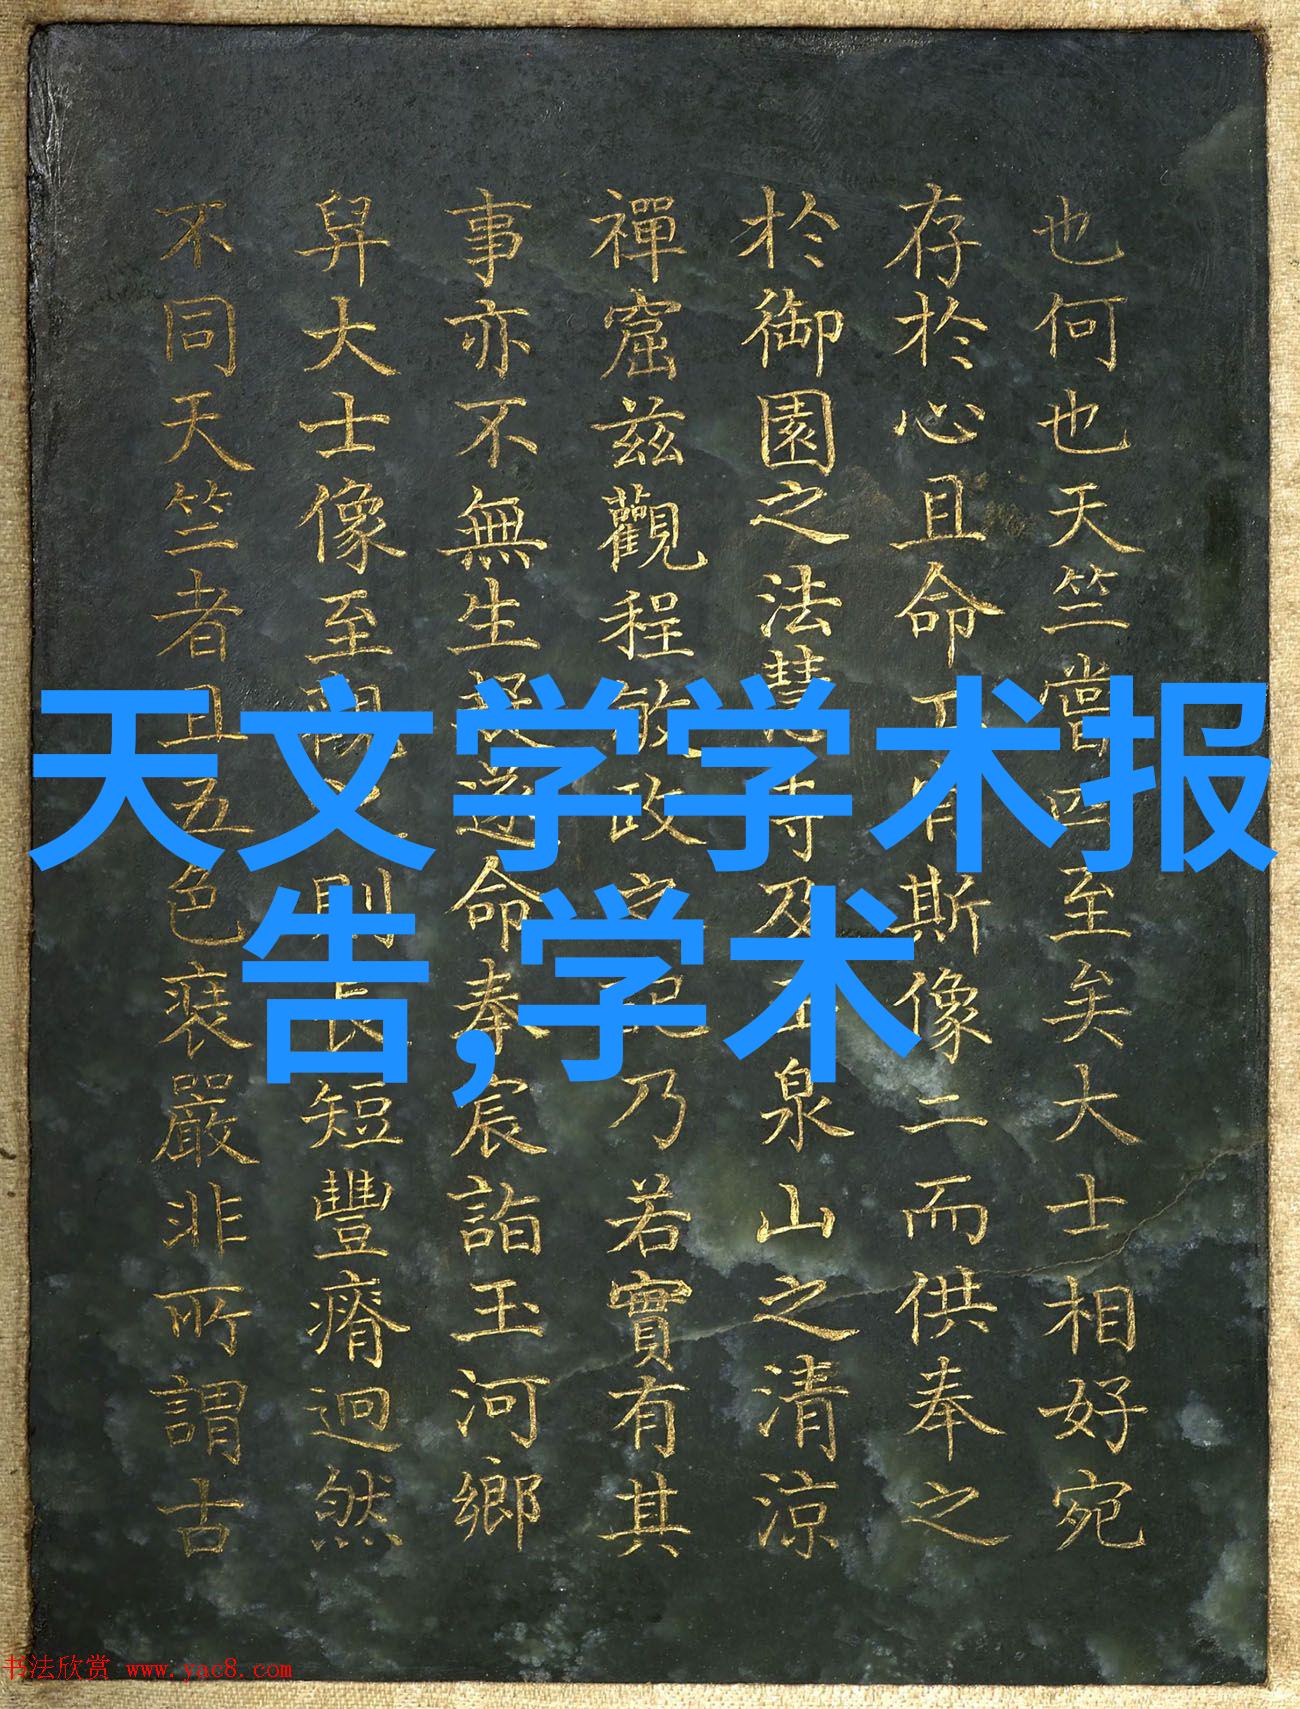 也何也天竺嘗至矣大士相好宛
存於心且命肖斯像二而供奉之
於御園之法慧寺及玉泉山之清涼
禪窟兹觀程敏政之記乃若實有其
事亦不無生疑遂命奉宸詣玉河鄉
舁大士像至觀之則長短豐瘠迥然
不同天竺者且五色裝嚴非所謂古
天文学学术报
告,学术
书法欣赏 www.yac8.com